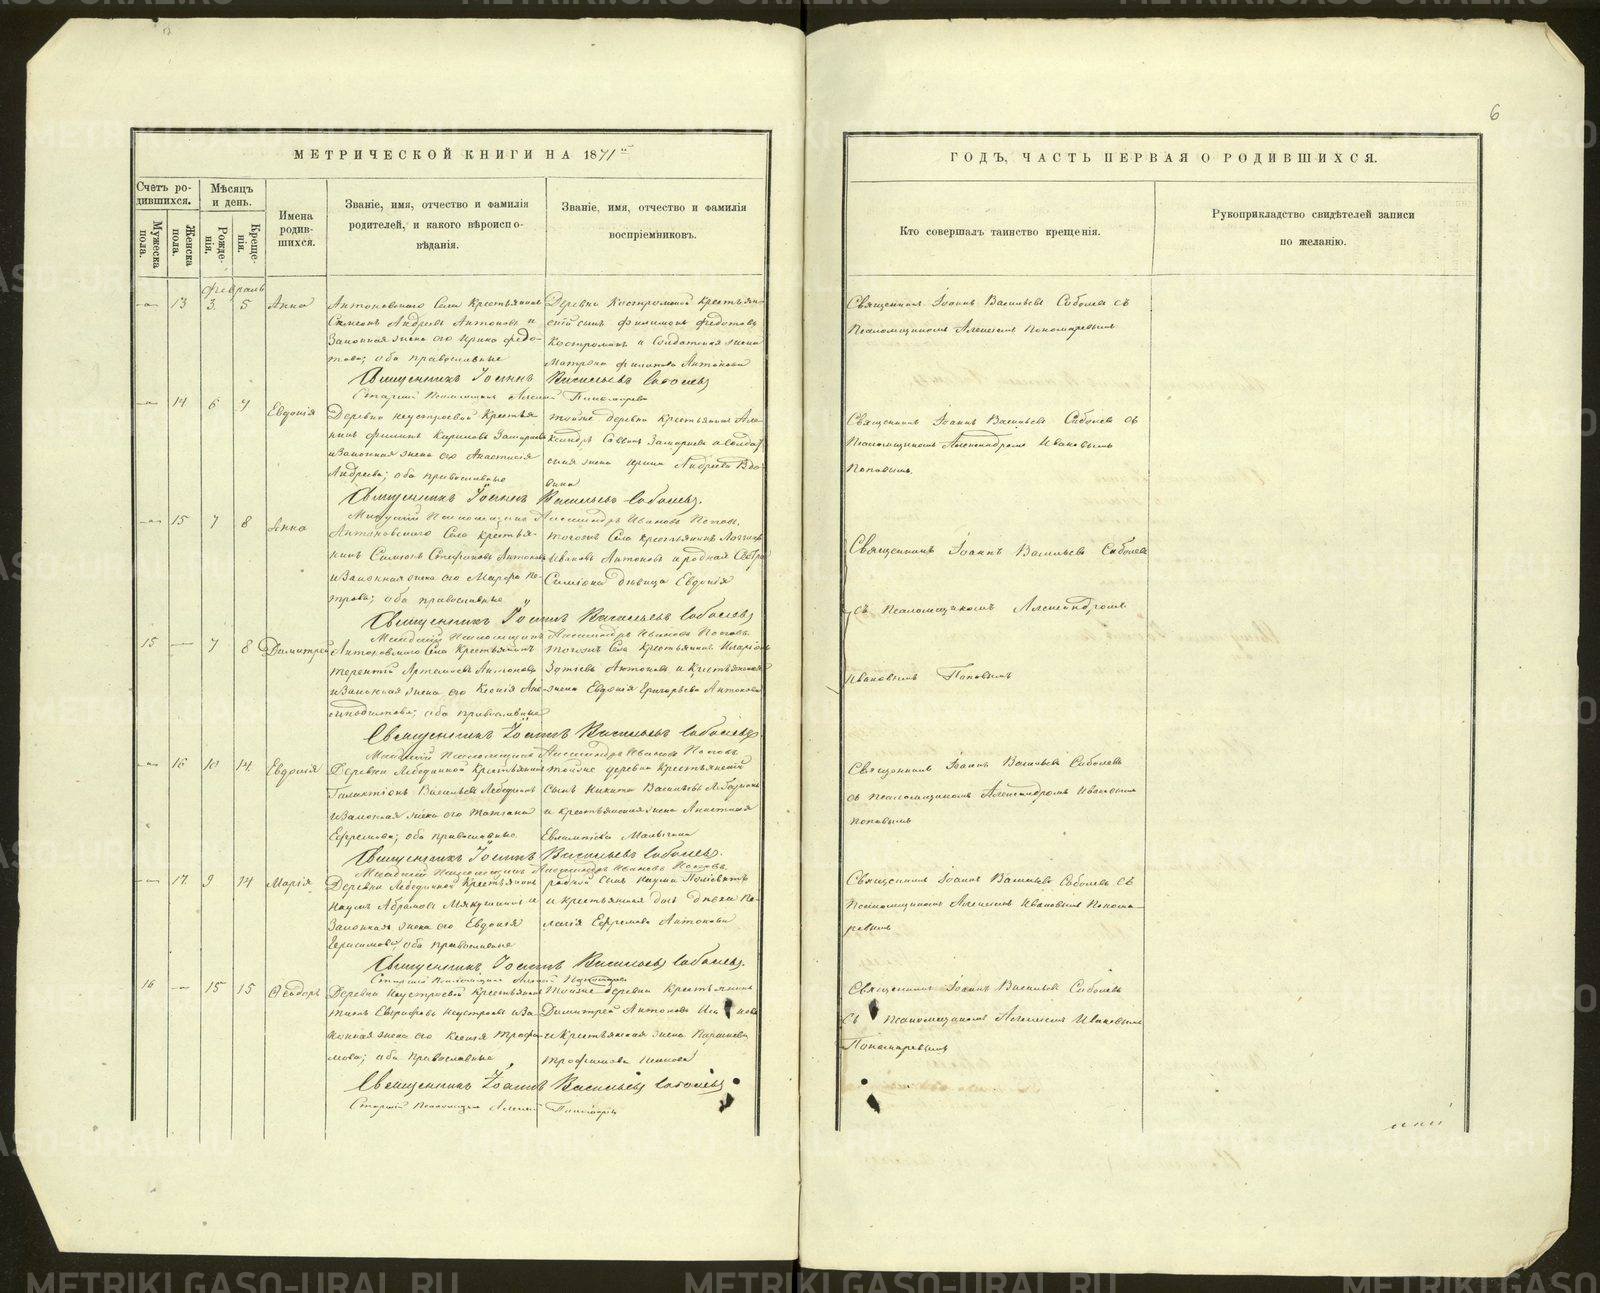 6
МЕТРИЧЕСКОЙ КНИГИ НА 1871й
ГОДЪ, ЧАСТЬ ПЕРВАЯ О РОДИВШИХСЯ.
Счетъ ро-
дившихся.
Мужеска пола.
Женска пола.
Мѣсяцъ
и день.
Рожде-
нія.
Креще-
нія.
Имена
родив-
шихся.
Званіе, имя, отчество и фамилія
родителей, и какого вѣроиспо-
вѣданія.
Званіе, имя, отчество и фамилія
воспріемниковъ.
Кто совершалъ таинство крещенія.
Рукоприкладство свидѣтелей записи
по желанію.
Февраль
13 3 5 Анна
Антоновскаго Села Крестьянинъ
Симеонъ Андреевъ Антоновъ и
Законная жена его Ирина Федо-
това; оба православные
Деревни Костроминой крестьян-
скій сынъ Филимонъ Федотовъ
Костроминъ и Солдатская жена
Матрена Антонова
Священникъ Іоаннъ Васильевъ Соболевъ
Старшій Псаломщикъ Алексей Пономаревъ
Священникъ Іоаннъ Васильевъ Соболевъ съ
Псаломщикомъ Алексеемъ Пономаревымъ
14 6 7 Евдокія
Деревни Неустроевой Крестья
нинъ Филипъ Кириловъ
и Законная жена его Анастасія
Андреева; оба православные
тойже деревни Крестьянинъ Але-
ксандръ и Солдат
ская жена Ирина Андреева Вдо-
вина
Священникъ Іоаннъ Васильевъ Соболевъ
Младшій Псаломщикъ Александръ Ивановъ Поповъ.
Священникъ Іоаннъ Васильевъ Соболевъ съ
Псаломщикомъ Александромъ Ивановымъ
Поповымъ.
15 7 8 Анна
Антоновского Села Крестья-
нинъ Симеонъ Стефановъ Антоновъ
и Законная жена его Марфа Пе-
трова; оба православные
тогоже Села Крестьянинъ Логгинъ
Ивановъ Антоновъ и родная Сестра
Симеона дѣвица Евдокія
Священникъ Іоаннъ Васильевъ Соболевъ
Младшій Псаломщикъ Александръ Ивановъ Поповъ.
Священникъ Іоаннъ Васильевъ Соболевъ
съ Псаломщикомъ Александромъ
Ивановымъ Поповымъ
15 7 8 Димитрей
Антоновскаго Села Крестьянинъ
Терентій Артемьевъ Антоновъ
и Законная жена его Ксенія
оба православные
тогоже Села Крестьянинъ Иларіонъ
Зотіевъ Антоновъ и Крестьянская
жена Евдокія Григорьева Антонова
Священникъ Іоаннъ Васильевъ Соболевъ
Младшій Псаломщикъ Александръ Ивановъ Поповъ.
16 10 14 Евдокія
Деревни Лебедкиной Крестьянинъ
Галактіонъ Васильевъ Лебедкинъ
и Законная жена его Татіана
Ефремова; оба православные
тойже деревни Крестьянскій
сынъ Никита Васильевъ Лебедкинъ
и крестьянская жена Анастасія
Евлампіева Малыгина
Священникъ Іоаннъ Васильевъ Соболевъ.
Младшій Псаломщикъ Александръ Ивановъ Поповъ.
Священникъ Іоаннъ Васильевъ Соболевъ
съ псаломщикомъ Александромъ Ивановымъ
Поповымъ
17 9 14 Марія
Деревни Лебедкиной Крестьянинъ
Наумъ Абрамовъ Мякушкинъ и
Законная жена его Евдокія
Герасимова; оба православные
родной сынъ Наума Поліевктъ
и крестьянская дочь дѣвка Пе-
лагія Ефремова Антонова
Священникъ Іоаннъ Васильевъ Соболевъ.
Старшій Псаломщикъ Алексей Пономаревъ
Священникъ Іоаннъ Васильевъ Соболевъ съ
Псаломщикомъ Алексеемъ Ивановымъ Понома-
ревымъ
16 15 15 Ѳеодоръ
Деревни Неустроевой Крестьянинъ
Евграфовъ Неустроевъ и За-
конная жена его Ксенія Трофи-
мова; оба православные
Тойже деревни Крестьянинъ
Димитрей Антоновъ
и Крестьянская жена
Трофимова
Священникъ Іоаннъ Васильевъ Соболевъ
Старшій Псаломщикъ Алексей Пономаревъ
Священникъ Іоаннъ Васильевъ Соболевъ
съ псаломщикомъ Алексеемъ Ивановымъ
Пономаревымъ
METRIKI.GASO-URAL.RU